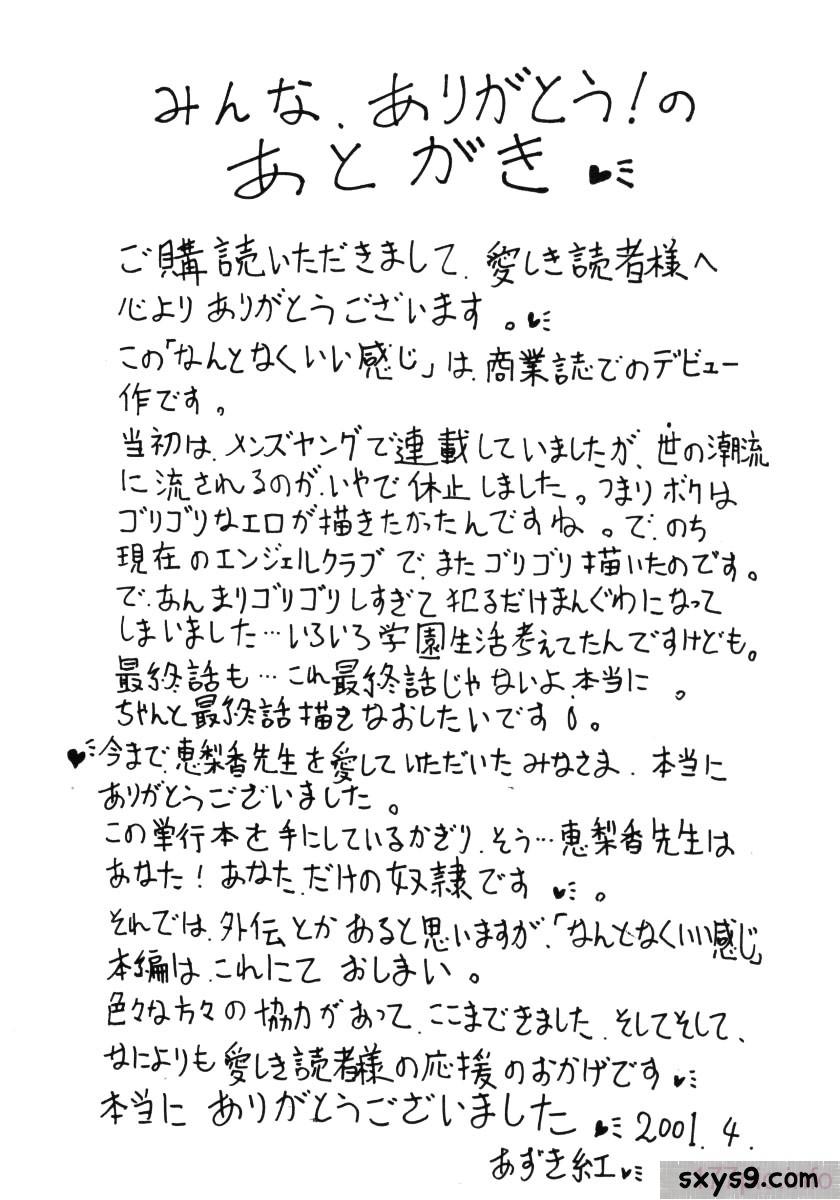 みんな、ありがとう!の
あとがき♥
ご購読いただきまして、愛しき読者様へ
心よりありがとうございます。♥
この「なんとなくいい感じ」は、商業誌でのデビュー
作です。
当初は、メンズヤングで連載していましたが、世の潮流
に流されるのが、いやで休止しました。つまりボクは
ゴリゴリなエロが描きたかったんですね。で、のち
現在のエンジェルクラブで、またゴリゴリ描いたのです。
で、あんまりゴリゴリしすぎて犯るだけまんぐわになって
しまいました…いろいろ学園生活考えてたんですけども。
最終話も…これ最終話じゃないよ、本当に。
ちゃんと最終話描きなおしたいです。
♥今まで、恵梨香先生を愛していただいたみなさま、本当に
ありがとうございました。
この単行本を手にしているかぎり、そう…恵梨香先生は
あなた!あなただけの奴隷です♥。
それでは、外伝とかあると思いますが、「なんとなくいい感じ」
本編は、これにておしまい。
色々な方々の協力があって、ここまできました、そしてそして、
なによりも愛しき読者様の応援のおかげです♥
本当にありがとうございました♥2001.4.
あずき紅♥
sxys9.com